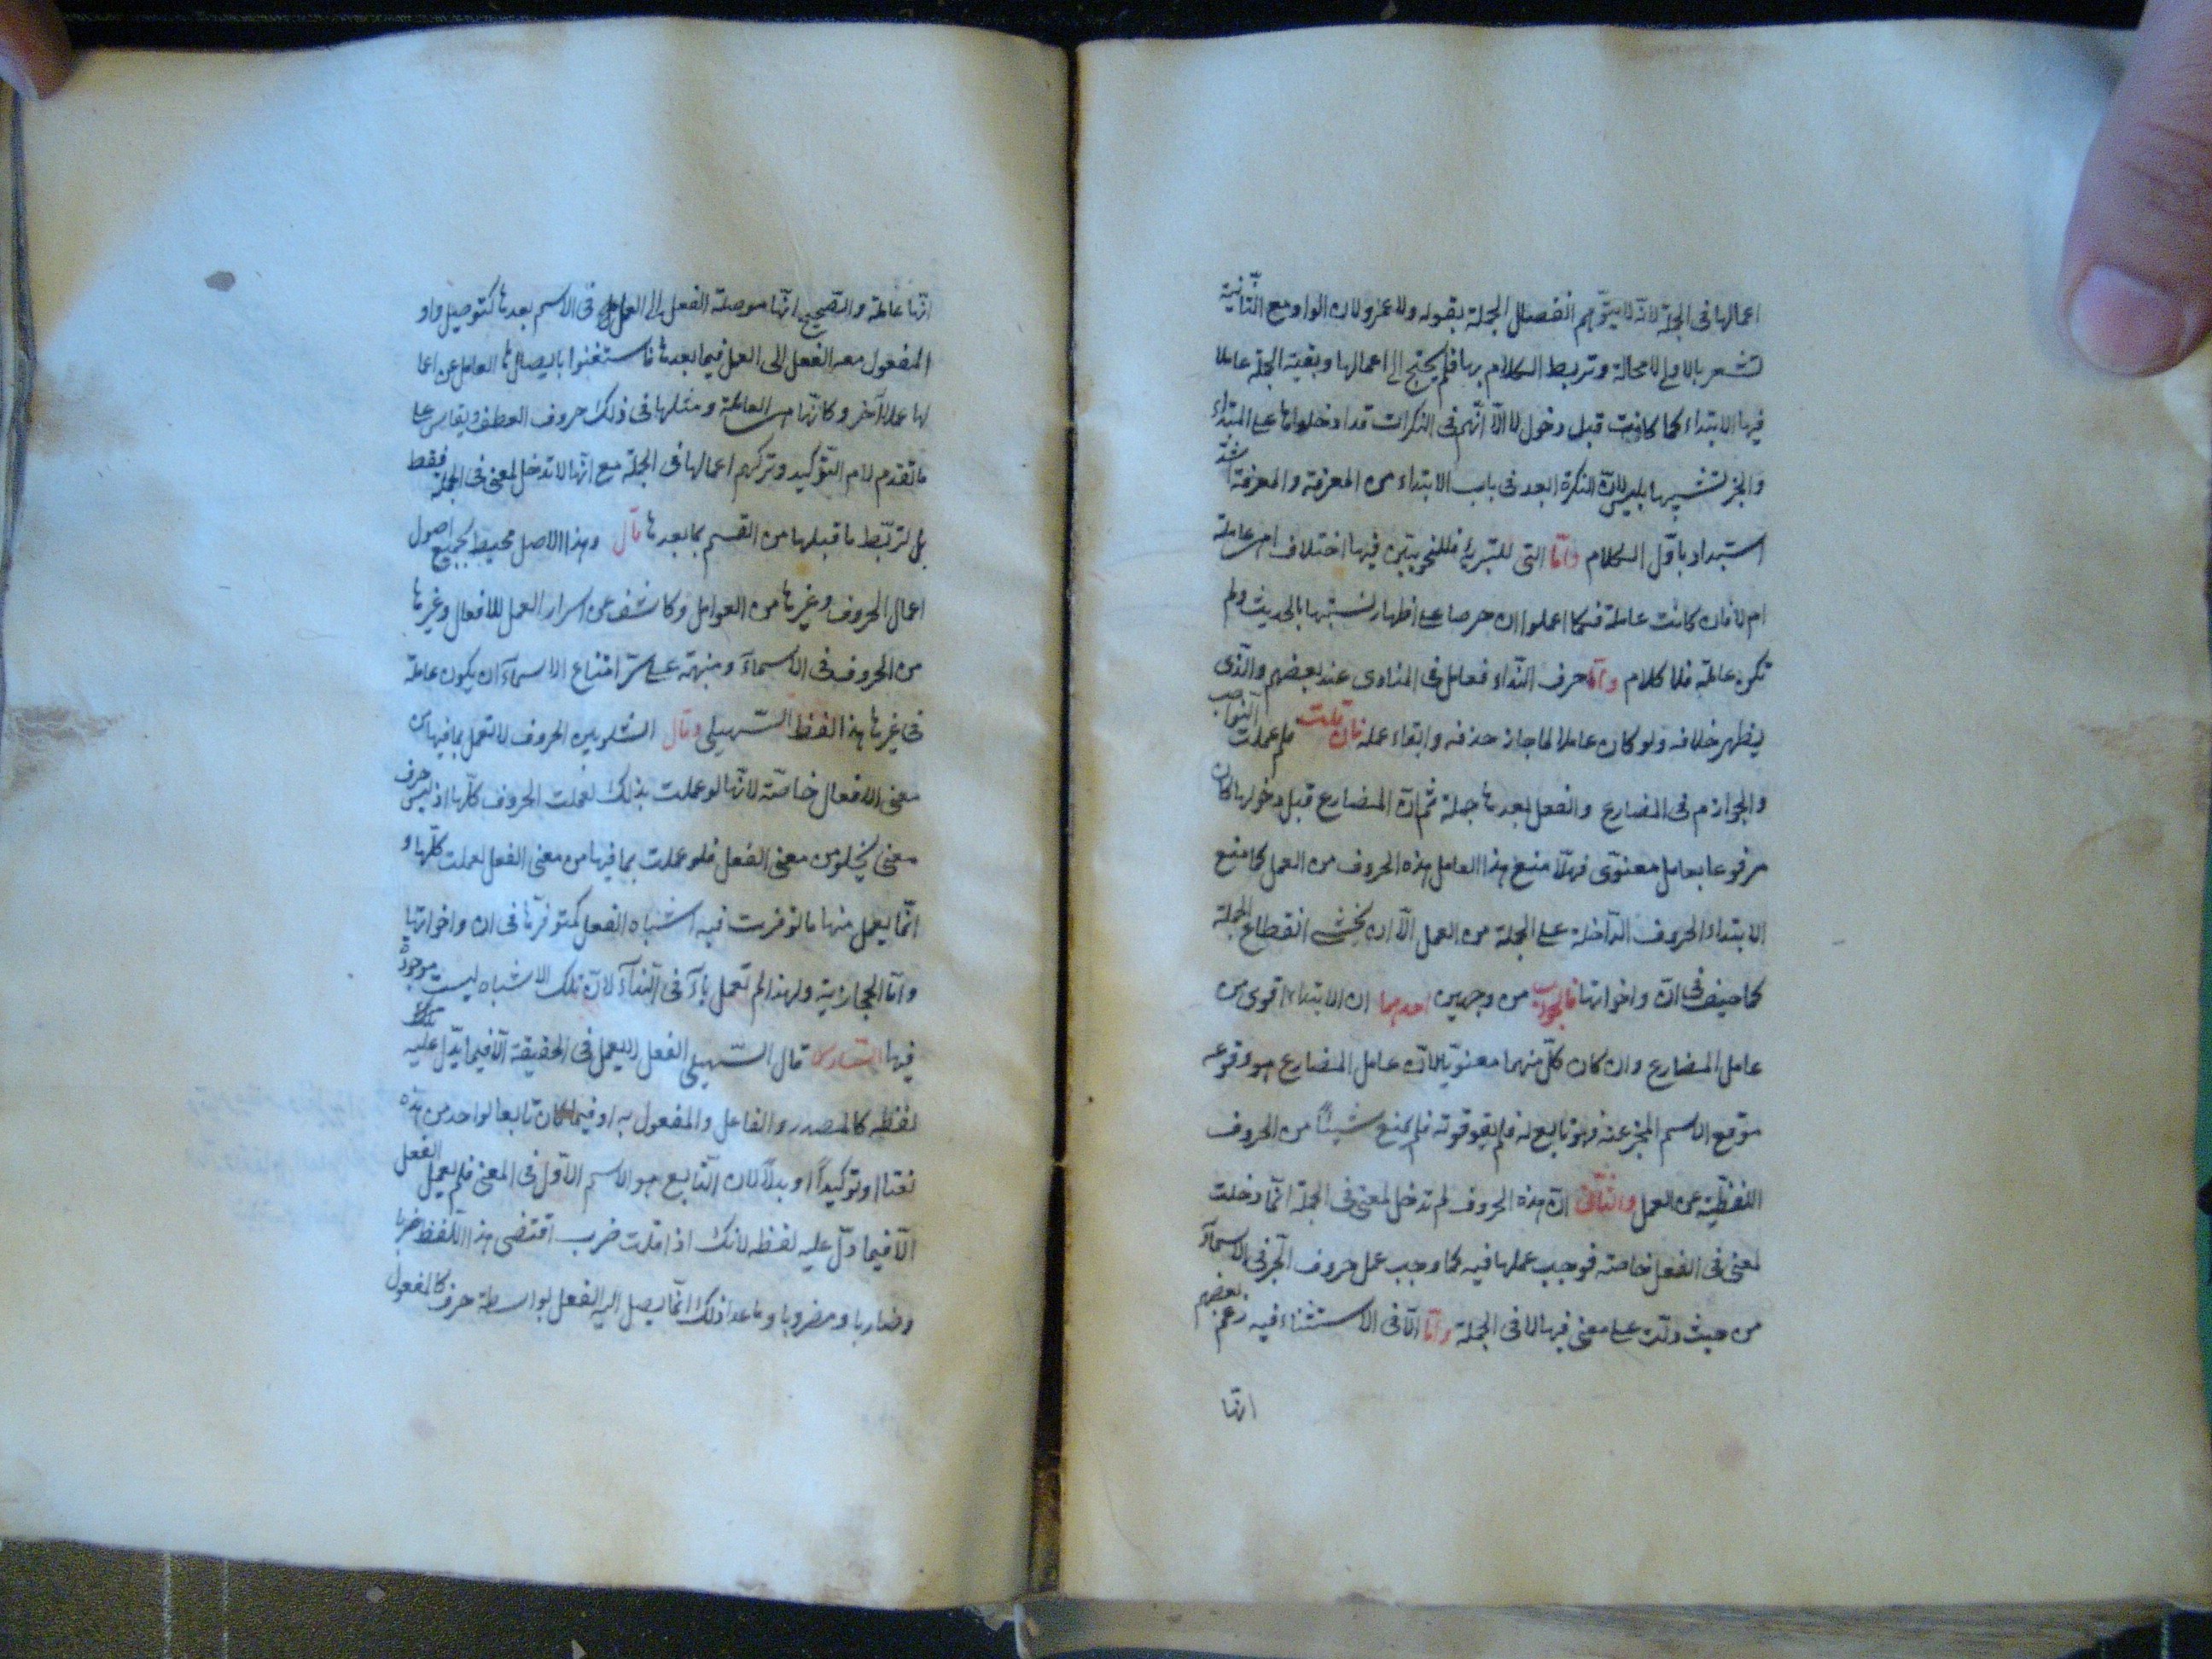 اعمالها فى الجملة لانه لا يتوهم انفصال الجملة بقوله ولا عمرو لان الواو مع الثانية
تشعر بالاولى لا محالة وتربط الكلام بها فلم يحتج الى اعمالها وبقيت الجملة عاملا
فيها الابتداء كما كانت قبل دخول لا الا انهم فى النكرات قد ادخلوها على المبتداء
والخبر تشبيها بليس لان النكرة ابعد فى باب الابتداء من المعرفة والمعرفة اشد
استبداد باول الكلام واما التى للتبرية فللنحويين فيها اختلاف اهى عاملة
ام لا فان كانت عاملة فكما اعملوا ان حرصا على اظهار تشبثها بالحديث ولم
تكن عاملة فلا كلام واما حرف النداء فعامل فى المنادى عند بعضهم والذى
يظهر خلافه ولو كان عاملا لما جاز حذفه وابقاء عمله فان قلت فلم عملت النواصب
والجوازم فى المضارع والفعل بعدها جملة ثم ان المضارع قبل دخولها كان
مرفوعا بعامل معنوى فهلا منع هذا العامل هذه الحروف من العمل كما منع
الابتداء الحروف الداخلة على الجملة من العمل الا ان يخشى انقطاع الجملة
كما خيف فى ان واخواتها فالجواب من وجهين احدهما ان الابتداء اقوى من
عامل المضارع وان كان كل منهما معنويا لان عامل المضارع هو وقوعه
موقع الاسم المخبر عنه فهو تابع له فلم يقو قوته فلم يمنع شيئاً من الحروف
اللفظية عن العمل والثانى ان هذه الحروف لم تدخل لمعنى فى الجملة انما دخلت
لمعنى فى الفعل خاصة فوجب عملها فيه كما وجب عمل حروف الجر فى الاسمآء
من حيث دلت على معنى فيها لا فى الجملة واما الا فى الاستثناء فيه زعم بعضهم
انها
انها عاملة والصحيح انها موصلة الفعل الى العمل فى الاسم بعدها كتوصيل واو
المفعول معه الفعل الى العمل فيما بعدها فاستغنوا بايصالها العامل عن اعما
لها عملا آخر وكانها هى العاملة ومثلها فى ذلك حروف العطف ويقاس على
ما تقدم لام التوكيد وتركهم اعمالها فى الجملة مع انها لا تدخل لمعنى فى الجملة فقط
بل لتربط ما قبلها من القسم بما بعدها قال وهذا الاصل محيط بجميع اصول
اعمال الحروف وغيرها من العوامل وكاشف عن اسرار العمل للافعال وغيرها
من الحروف فى الاسمآء ومنبهة على سر امتناع الاسمآء ان يكون عاملة
فى غيرها هذا لفظ السهيلى وقال الشلوبين الحروف لا تعمل بما فيها من
معنى الافعال خاصة لانها لو عملت بذلك لعملت الحروف كلها اذ ليس حرف
معنى يخلو من معنى الفعل فلو عملت بما فيها من معنى الفعل لعملت كلها و
انما يعمل منها ما توفرت فيه اشباه الفعل كتوفرها فى ان واخواتها
واما الحجازية ولهذا لم تعمل يآء فى الندآء لان تلك الاشباه ليست موجودة
فيها السادس قال السهيلى الفعل لا يعمل فى الحقيقة الا فيما يدل عليه
لفظه كالمصدر والفاعل والمفعول به او فيما كان تابعا لواحد من هذه
نعتا او توكيداً او بدلاً لان التابع هو الاسم الاول فى المعنى فلم يعمل الفعل
الا فيما دل عليه لفظه لانك اذا قلت ضرب اقتضى هذا اللفظ ضربا
وضاربا ومضروبا وما عدا ذلك انما يصل اليه الفعل بواسطة حرف كالمفعول